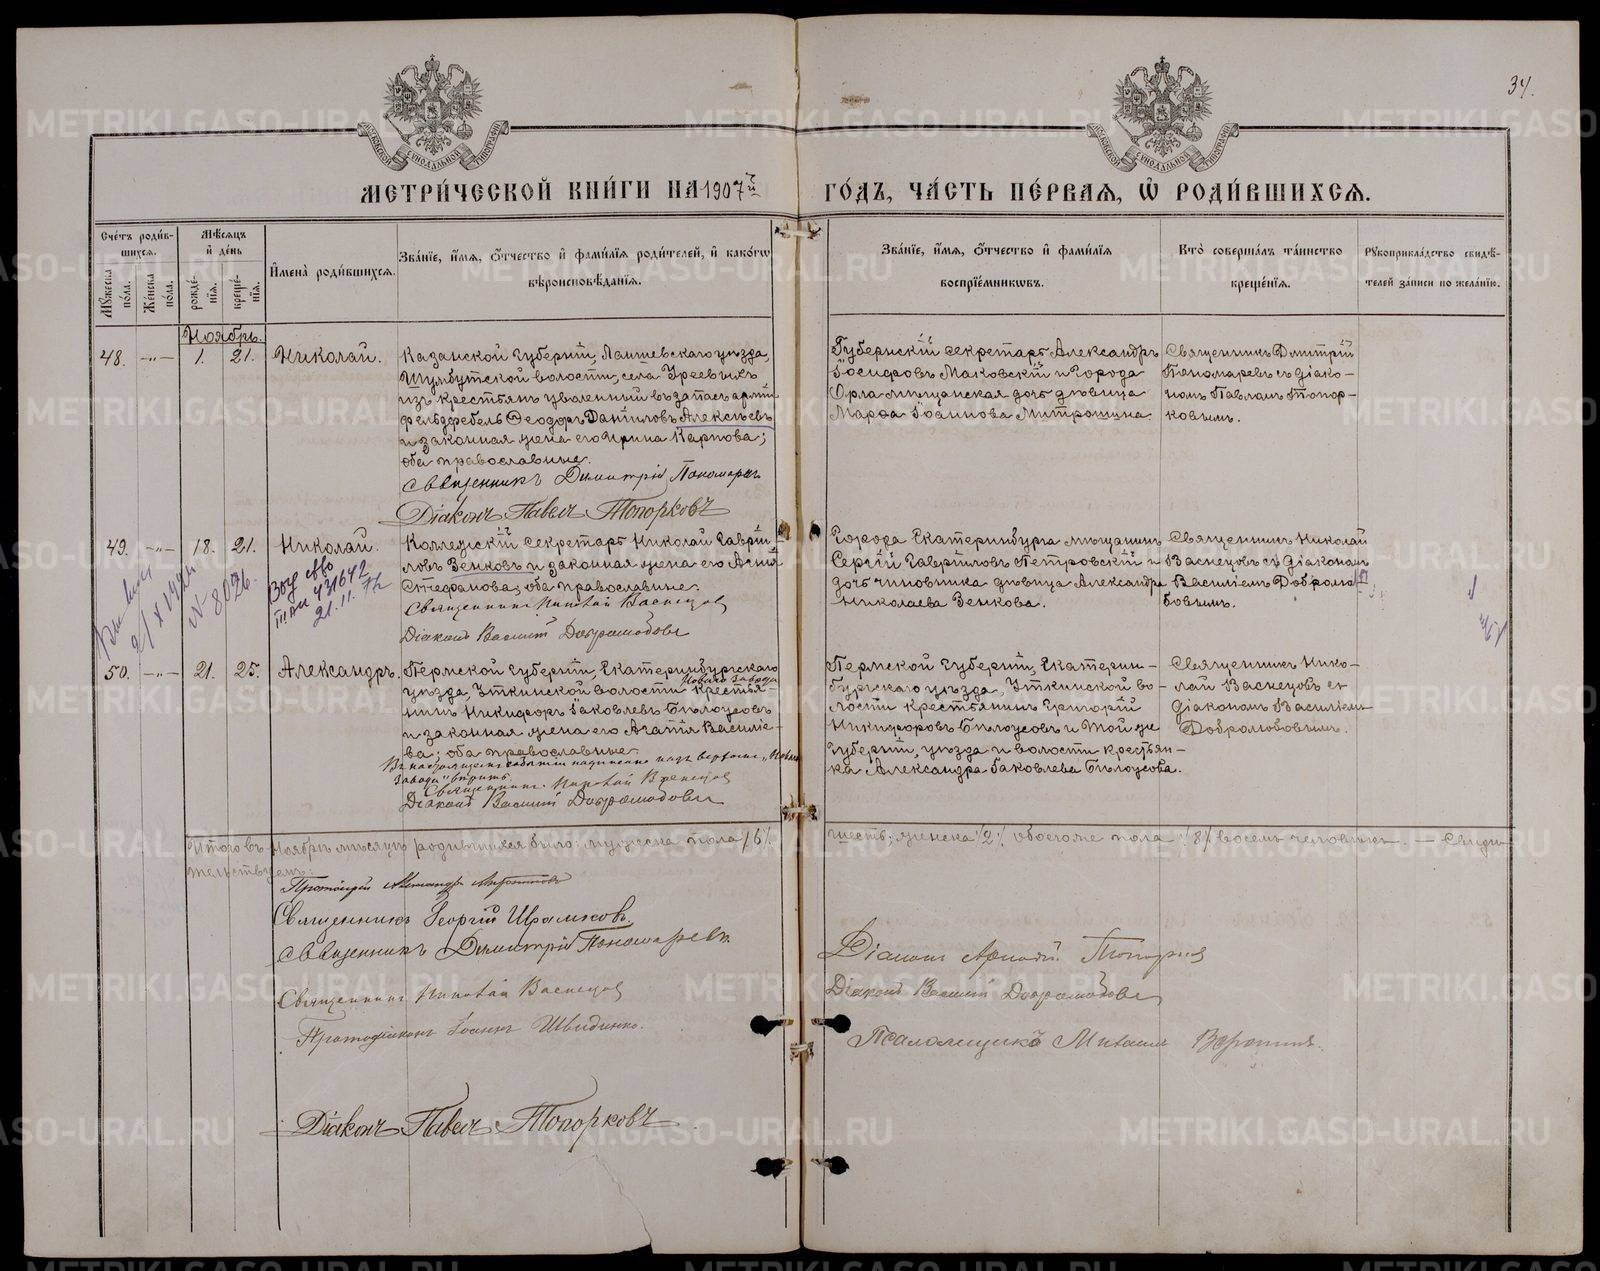 34.
МОСКОВСКОЙ СѴНОДАЛЬНОЙ ТИПОГРАФІИ
МОСКОВСКОЙ СѴНОДАЛЬНОЙ ТИПОГРАФІИ
МЕТРИ́ЧЕСКОЙ КНИ́ГИ НА 1907й
ГО́ДЪ, ЧА́СТЬ ПЕ́РВАЯ, Ѿ РОДИ́ВШИХСЯ.
Сче́тъ роди́вшихся.
Му́жеска по́ла.
Же́нска по́ла.
Мѣ́сяцъ и́ де́нь
рожде́нїя.
креще́нїя.
И҆мена̀ роди́вшихся.
Зва́нїе, и҆́мя, ѻ҆́тчество и҆ фами́лїя роди́телей, и҆ како́гѡ
вѣроисповѣ́данїя.
Зва́нїе, и҆́мя, ѻ҆́тчество и҆ фами́лїя
воспрїе́мникѡвъ.
Кто̀ соверша́лъ та́инство
креще́нїя.
Рꙋкоприкла́дство свидѣ́-
телей за́писи по жела́нїю.
Ноябрь.
48. -„- 1. 21. Николай.
Казанской губерніи, Лаишевскаго уѣзда,
Шумбутской волости, села Урѣевыхъ
изъ крестьянъ уволенный въ запасъ арміи
фельдфебель Ѳеодоръ Даніиловъ Алексѣевъ
и законная жена его Ирина Карпова;
оба православные.
Священникъ Димитрій Пономаревъ
Діаконъ Павелъ Топорковъ
Губернскій секретарь Александръ
Іосифовъ Маковскій и города
Орла мѣщанская дочь дѣвица
Марѳа Іоаннова Митрошина
Священникъ Дмитрій
Пономаревъ съ діако-
номъ Павломъ Топор-
ковымъ.
49. -„- 18. 21. Николай.
Коллежскій секретарь Николай Гаврiи-
ловъ Зенковъ и законная жена его Агнія
Стефанова; оба православные.
Священникъ Николай Васнецовъ
Діаконъ Василій Добролюбовъ
Города Екатеринбурга мѣщанинъ
Сергій Гавріиловъ Петровскій и
дочь чиновника дѣвица Александра
Николаева Зенкова.
Священникъ Николай
Васнецовъ съ діакономъ
Василіемъ Добролю-
бовымъ.
№ 8096.
21.11.
50. -„- 21. 25. Александръ.
Пермской губерніи, Екатеринбургскаго
уѣзда, Уткинской волости крестья-
нинъ Никифоръ Іаковлевъ Бѣлоусовъ
и законная жена его Агаѳія Василіе-
ва; оба православные.
Въ настоящемъ событіи надписано надъ верхомъ „Новаго
Завода" вѣрить.
Священникъ Николай Васнецовъ
Діаконъ Василій Добролюбовъ
Пермской губерніи, Екатерин-
бургскаго уѣзда, Уткинской во-
лости крестьянинъ Григорій
Никифоровъ Бѣлоусовъ и той же
губерніи, уѣзда и волости крестьян-
ка Александра Іаковлева Бѣлоусова.
Священникъ Нико-
лай Васнецовъ съ
діакономъ Василіемъ
Добролюбовымъ.
Итого въ Ноябрѣ мѣсяцѣ родившихся было: мужска пола /6/ шесть; женска /2/, обоего же пола /8/ восемь человѣкъ. — Свидѣ-
тельствуемъ:
Священникъ Георгій
Священникъ Димитрій Пономаревъ.
Священникъ Николай Васнецовъ
Протодіаконъ Іоаннъ
Діаконъ Павелъ Топорковъ
Діаконъ
Діаконъ Василій Добролюбовъ
Псаломщикъ Михаилъ
METRIKI.GASO-URAL.RU